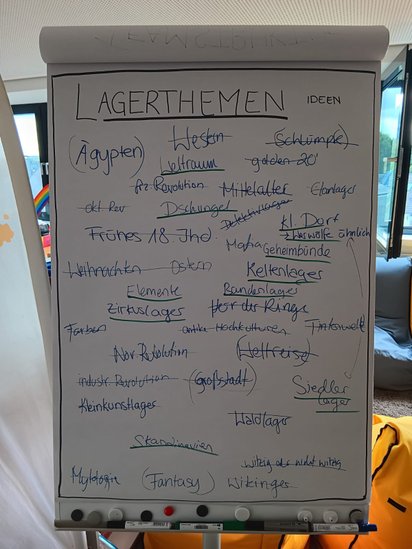 LAGERTHEMEN IDEEN
(Ägypten) Western (Schlümpfe)
Weltraum golden 20'
frz. Revolution Mittelalter
okt Rev Dschungel Detektivlager kl. Dorf
Frühes 18. Jhd. Werwölfe ähnlich
Mafia Geheimbünde
Weihnachten Ostern Keltenlager
Elemente Bandenlager
Zirkuslager Herr der Ringe
Farben antike Hochkulturen Tintenwelt
Nov Revolution (Weltreise)
industr. Revolution (Großstadt) Siedler
lager
Kleinkunstlager
Waldlager
Skandinavien
witzig oder nicht witzig
Mythologie (Fantasy) Wikinger